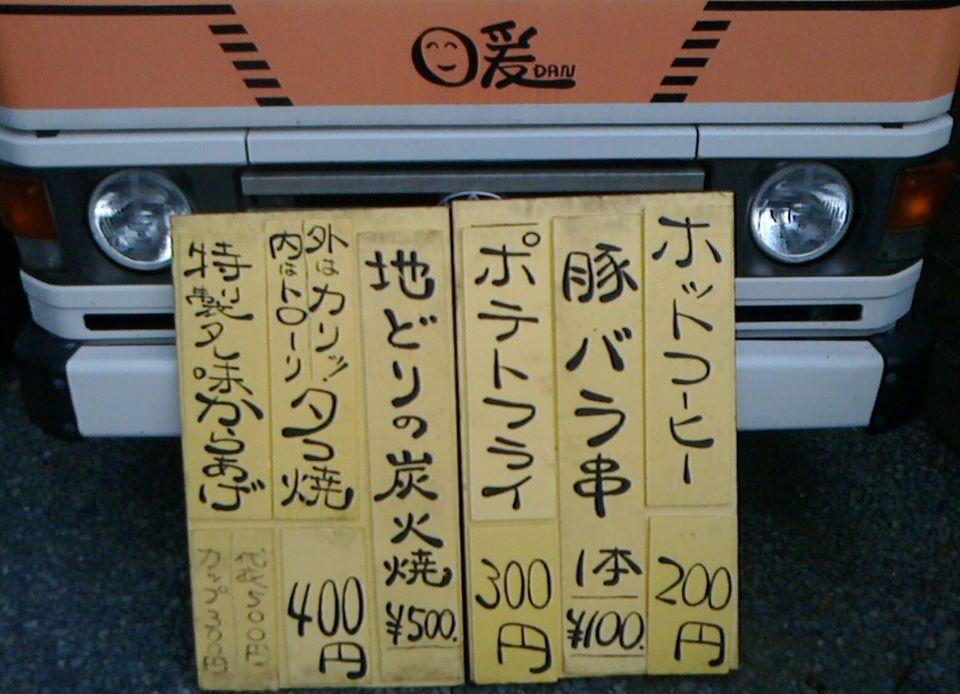 暖 DAN
ホットコーヒー
200円
豚バラ串
1本
¥100.
ポテトフライ
300円
地どりの炭火焼
¥500.
外はカリッ!
内はトローリ
タコ焼
400円
特製タレ味からあげ
袋500円
カップ300円